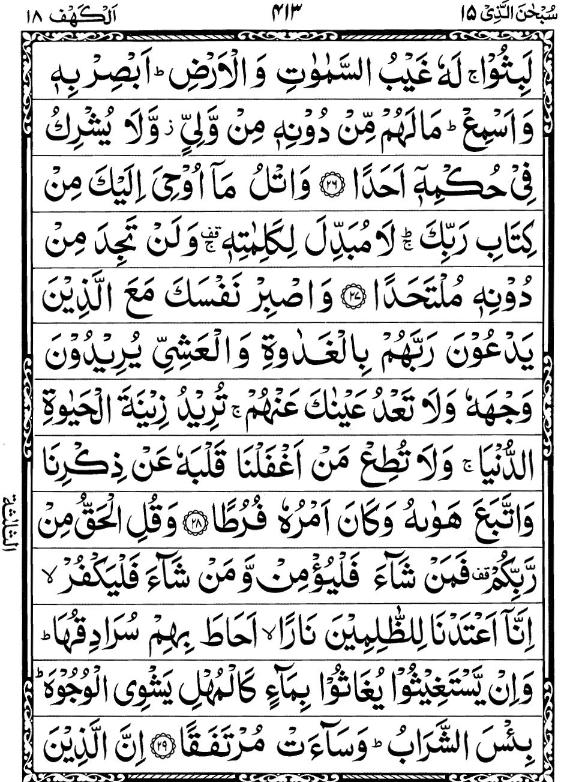 سُبْحٰنَ الَّذِیْۤ ١٥ ٤١٣ اَلْكَهْف ١٨
لَبِثُوْا ۚ لَهٗ غَیْبُ السَّمٰوٰتِ وَ الْاَرْضِ ؕ اَبْصِرْ بِهٖ
وَ اَسْمِعْ ؕ مَا لَهُمْ مِّنْ دُوْنِهٖ مِنْ وَّلِیٍّ ؗ وَّ لَا یُشْرِكُ
فِیْ حُكْمِهٖۤ اَحَدًا ﴿٢٦﴾ وَ اتْلُ مَاۤ اُوْحِیَ اِلَیْكَ مِنْ
كِتَابِ رَبِّكَ ؕۚ لَا مُبَدِّلَ لِكَلِمٰتِهٖ ۚ۫ وَ لَنْ تَجِدَ مِنْ
دُوْنِهٖ مُلْتَحَدًا ﴿٢٧﴾ وَ اصْبِرْ نَفْسَكَ مَعَ الَّذِیْنَ
یَدْعُوْنَ رَبَّهُمْ بِالْغَدٰوةِ وَ الْعَشِیِّ یُرِیْدُوْنَ
وَجْهَهٗ وَ لَا تَعْدُ عَیْنٰكَ عَنْهُمْ ۚ تُرِیْدُ زِیْنَةَ الْحَیٰوةِ
الدُّنْیَا ۚ وَ لَا تُطِعْ مَنْ اَغْفَلْنَا قَلْبَهٗ عَنْ ذِكْرِنَا
وَ اتَّبَعَ هَوٰىهُ وَ كَانَ اَمْرُهٗ فُرُطًا ﴿٢٨﴾ وَ قُلِ الْحَقُّ مِنْ
رَّبِّكُمْ ۫ فَمَنْ شَآءَ فَلْیُؤْمِنْ وَّ مَنْ شَآءَ فَلْیَكْفُرْ ۙ
اِنَّاۤ اَعْتَدْنَا لِلظّٰلِمِیْنَ نَارًا ۙ اَحَاطَ بِهِمْ سُرَادِقُهَا ؕ
وَ اِنْ یَّسْتَغِیْثُوْا یُغَاثُوْا بِمَآءٍ كَالْمُهْلِ یَشْوِی الْوُجُوْهَ ؕ
بِئْسَ الشَّرَابُ ؕ وَ سَآءَتْ مُرْتَفَقًا ﴿٢٩﴾ اِنَّ الَّذِیْنَ
الثلٰثة